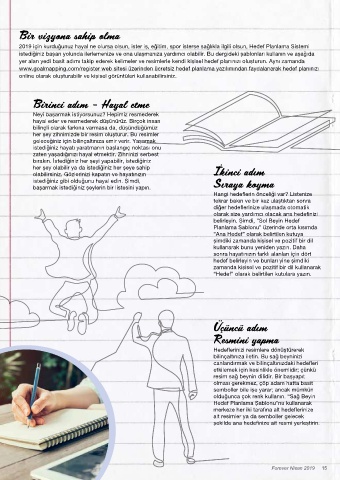 Bir vizyona sahip olma
2019 için kurduğunuz hayal ne olursa olsun, ister iş, eğitim, spor isterse sağlıkla ilgili olsun, Hedef Planlama Sistemi
istediğiniz başarı yolunda ilerlemenize ve ona ulaşmanıza yardımcı olabilir. Bu dergideki şablonları kullanın ve aşağıda
yer alan yedi basit adımı takip ederek kelimeler ve resimlerle kendi kişisel hedef planınızı oluşturun. Aynı zamanda
www.goalmapping.com/register web sitesi üzerinden ücretsiz hedef planlama yazılımından faydalanarak hedef planınızı
online olarak oluşturabilir ve kişisel görüntüleri kullanabilirsiniz.
Birinci adım - Hayal etme
Neyi başarmak istiyorsunuz? Hepimiz resmederek
hayal eder ve resmederek düşünürüz. Birçok insan
bilinçli olarak farkına varmasa da, düşündüğümüz
her şey zihnimizde bir resim oluşturur. Bu resimler
geleceğiniz için bilinçaltınıza emir verir. Yaşamak
istediğiniz hayatı yaratmanın başlangıç noktası onu
zaten yaşadığınızı hayal etmektir. Zihninizi serbest
bırakın. İstediğiniz her şeyi yapabilir, istediğiniz
her şey olabilir ya da istediğiniz her şeye sahip
olabilirsiniz. Gözlerinizi kapatın ve hayatınızın
istediğiniz gibi olduğunu hayal edin. Şimdi,
başarmak istediğiniz şeylerin bir listesini yapın.
İkinci adım
Sıraya koyma
Hangi hedeflerin önceliği var? Listenize
tekrar bakın ve bir kez ulaştıktan sonra
diğer hedeflerinize ulaşmada otomatik
olarak size yardımcı olacak ana hedefinizi
belirleyin. Şimdi, "Sol Beyin Hedef
Planlama Şablonu" üzerinde orta kısımda
"Ana Hedef" olarak belirtilen kutuya
şimdiki zamanda kişisel ve pozitif bir dil
kullanarak bunu yeniden yazın. Daha
sonra hayatınızın farklı alanları için dört
hedef belirleyin ve bunları yine şimdiki
zamanda kişisel ve pozitif bir dil kullanarak
"Hedef" olarak belirtilen kutulara yazın.
Üçüncü adım
Resmini yapma
Hedeflerinizi resimlere dönüştürerek
bilinçaltınıza iletin. Bu sağ beyninizi
canlandırmak ve bilinçaltınızdaki hedefleri
etkilemek için kesinlikle önemlidir; çünkü
resim sağ beynin dilidir. Bir başyapıt
olması gerekmez, çöp adam hatta basit
semboller bile işe yarar; ancak mümkün
olduğunca çok renk kullanın. "Sağ Beyin
Hedef Planlama Şablonu"nu kullanarak
merkeze her iki tarafına alt hedeflerinize
ait resimler ya da semboller gelecek
şekilde ana hedefinize ait resmi yerleştirin.
Forever Nisan 2019 15